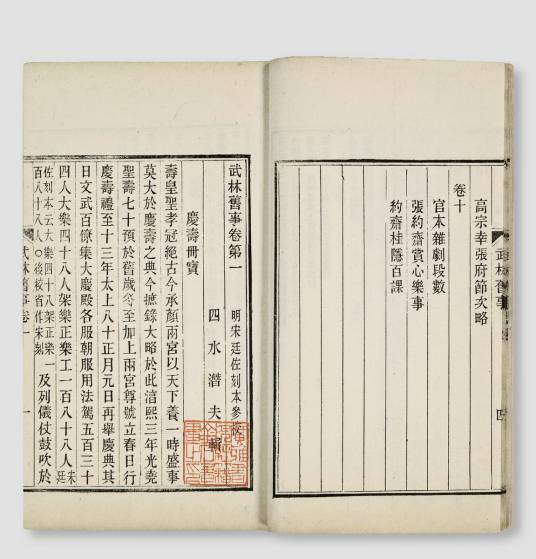 武林舊事 四
高宗幸張府節次略
卷十
官本雜劇段數
張約齋賞心樂事
約齋桂隱百課
武林舊事卷第一 明宋廷佐刻本參校
四水潛夫輯
慶壽冊寶
壽皇聖孝冠絕古今承顏兩宮以天下養一時盛事
莫大於慶壽之典今摭錄大略於此湻熙三年光堯
聖壽七十預於舊歲冬至加上兩宮尊號立春日行
慶壽禮至十三年太上八十正月元日再舉慶典其
日文武百僚集大慶殿各服朝服用法駕五百三十
四人大樂四十八人架樂正樂工一百八十八人宋廷
佐刻本云大樂四十八架正樂一百八十八人〇後校省作宋刻及列儀仗鼓吹於
武林舊事卷一 一